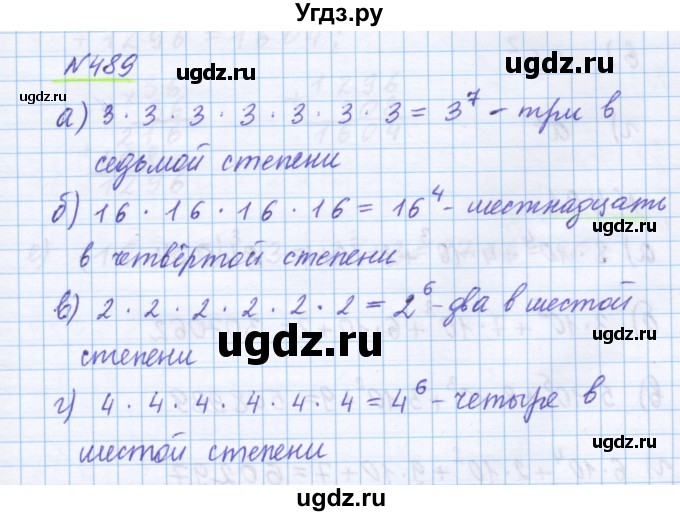 Угдз.ру
№489
ugdz.ru
ugdz.ru
ugdz.ru
а) 3 · 3 · 3 · 3 · 3 · 3 · 3 = 3⁷ - три в
седьмой степени
ugdz.ru
ugdz.ru
б) 16 · 16 · 16 · 16 = 16⁴ - шестнадцать
в четвёртой степени
ugdz.ru
ugdz.ru
в) 2 · 2 · 2 · 2 · 2 · 2 = 2⁶ - два в шестой
ugdz.ru
степени
ugdz.ru
г) 4 · 4 · 4 · 4 · 4 · 4 = 4⁶ - четыре в
шестой степени
ugdz.ru
ugdz.ru
ugdz.ru